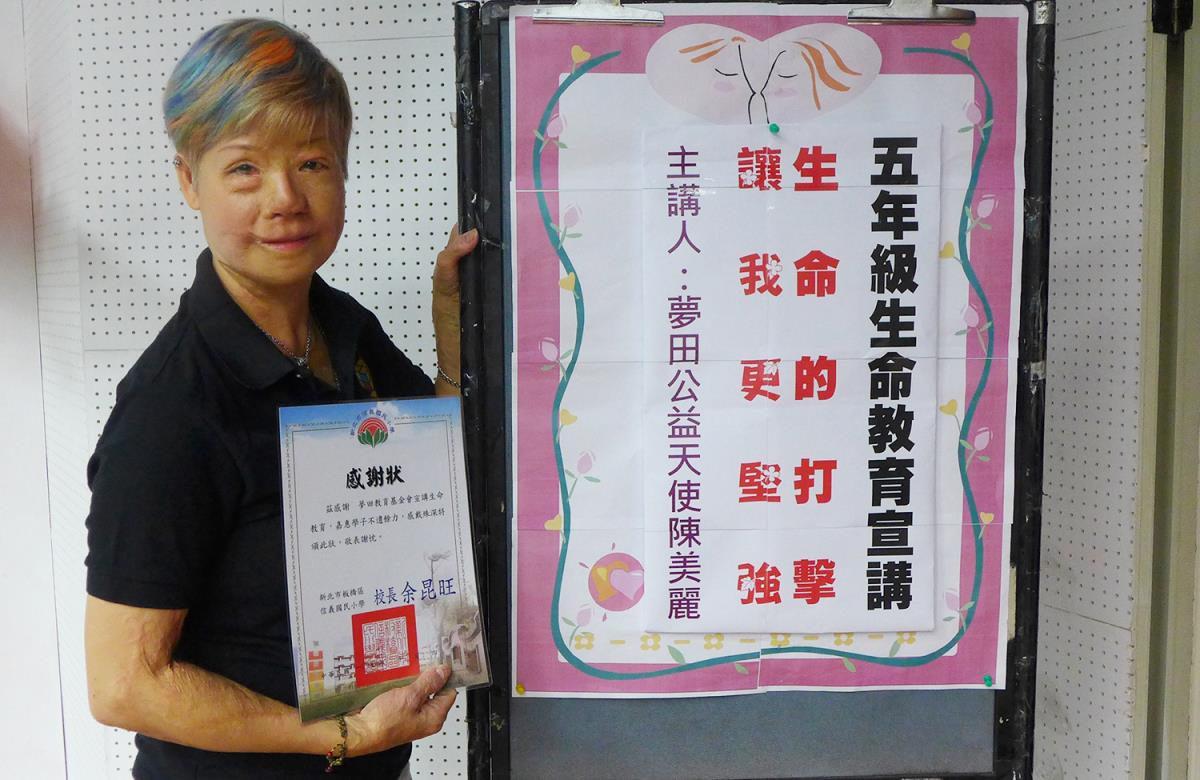 五年級生命教育宣講
生命的打擊
讓我更堅強
主講人：夢田公益天使陳美麗
感謝狀
茲感謝 夢田教育基金會宣講生命
教育，嘉惠學子不遺餘力，感戴殊深特
頒此狀，敬表謝忱。
新北市板橋區
信義國民小學
校長 余昆旺